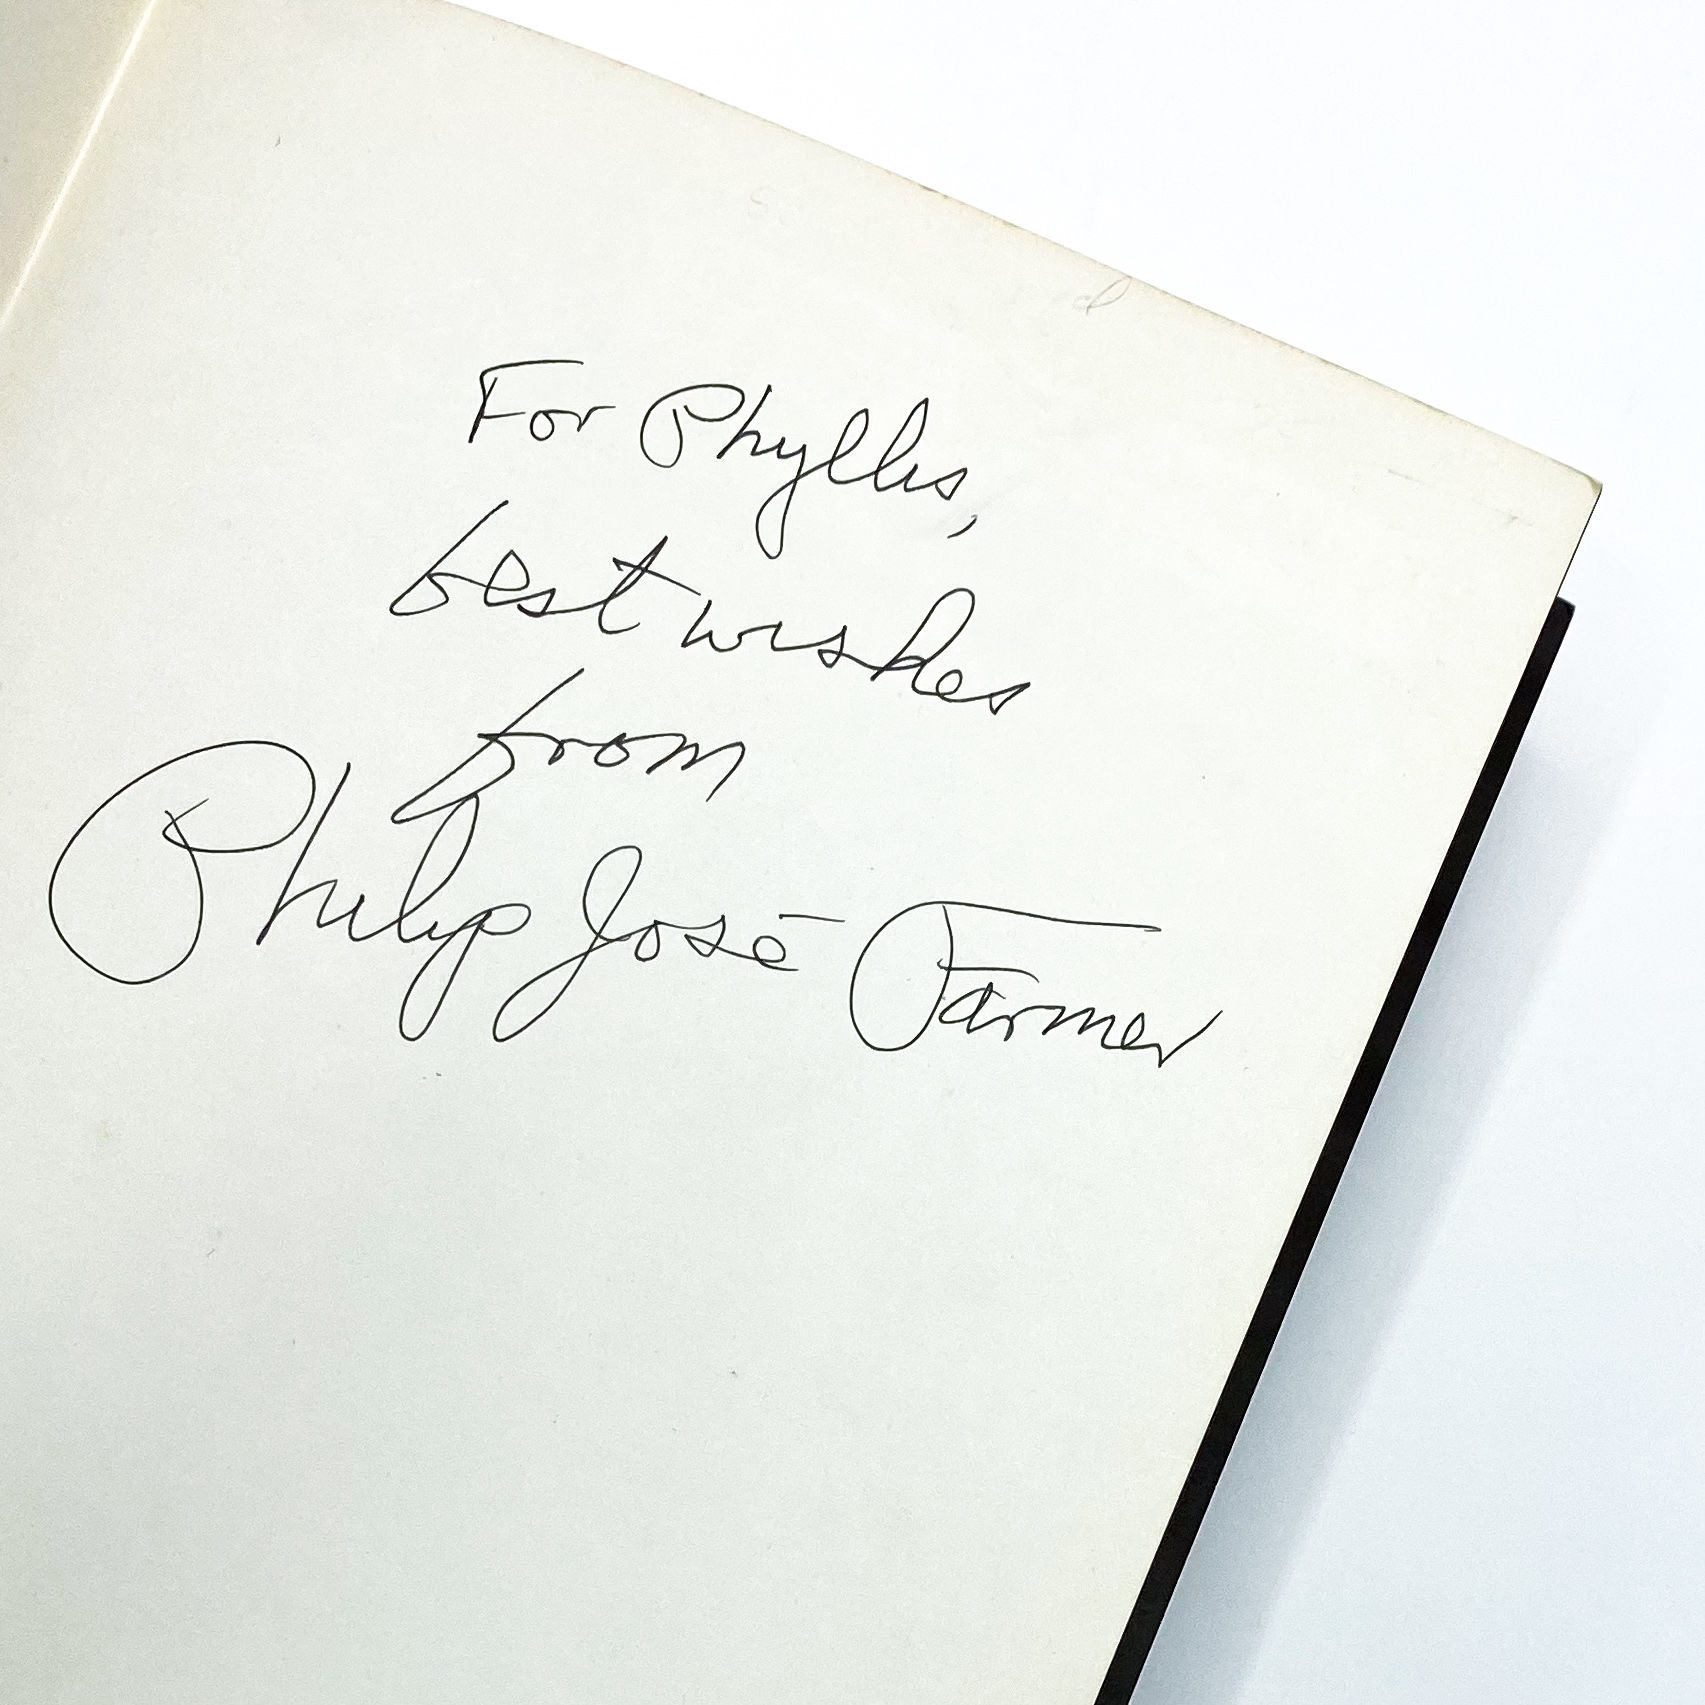 For Phyllis,
best wishes
from
Philip José Farmer